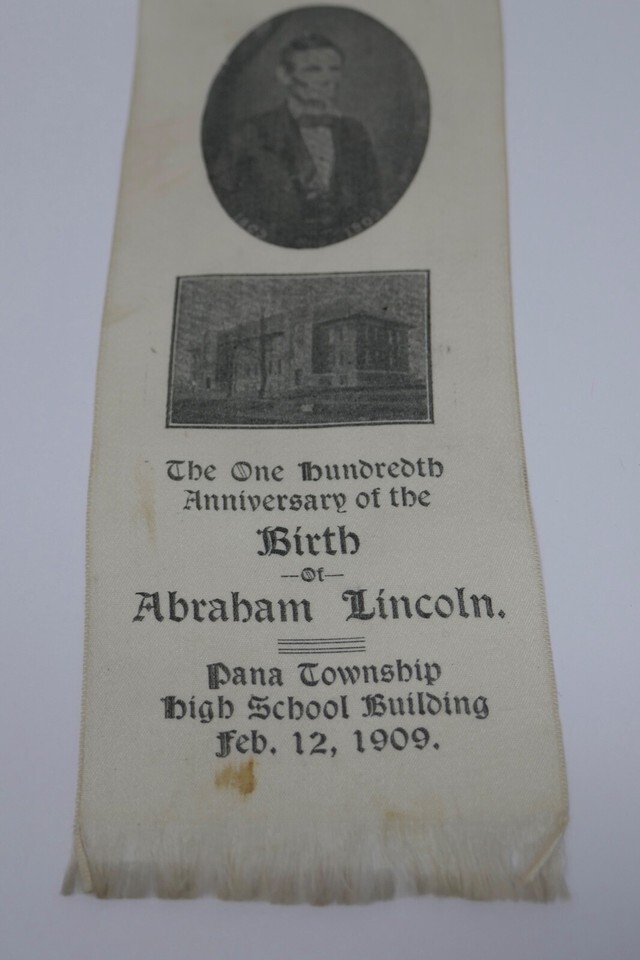 1809 1909
The One Hundredth
Anniversary of the
Birth
—Of—
Abraham Lincoln.
Pana Township
High School Building
Feb. 12, 1909.